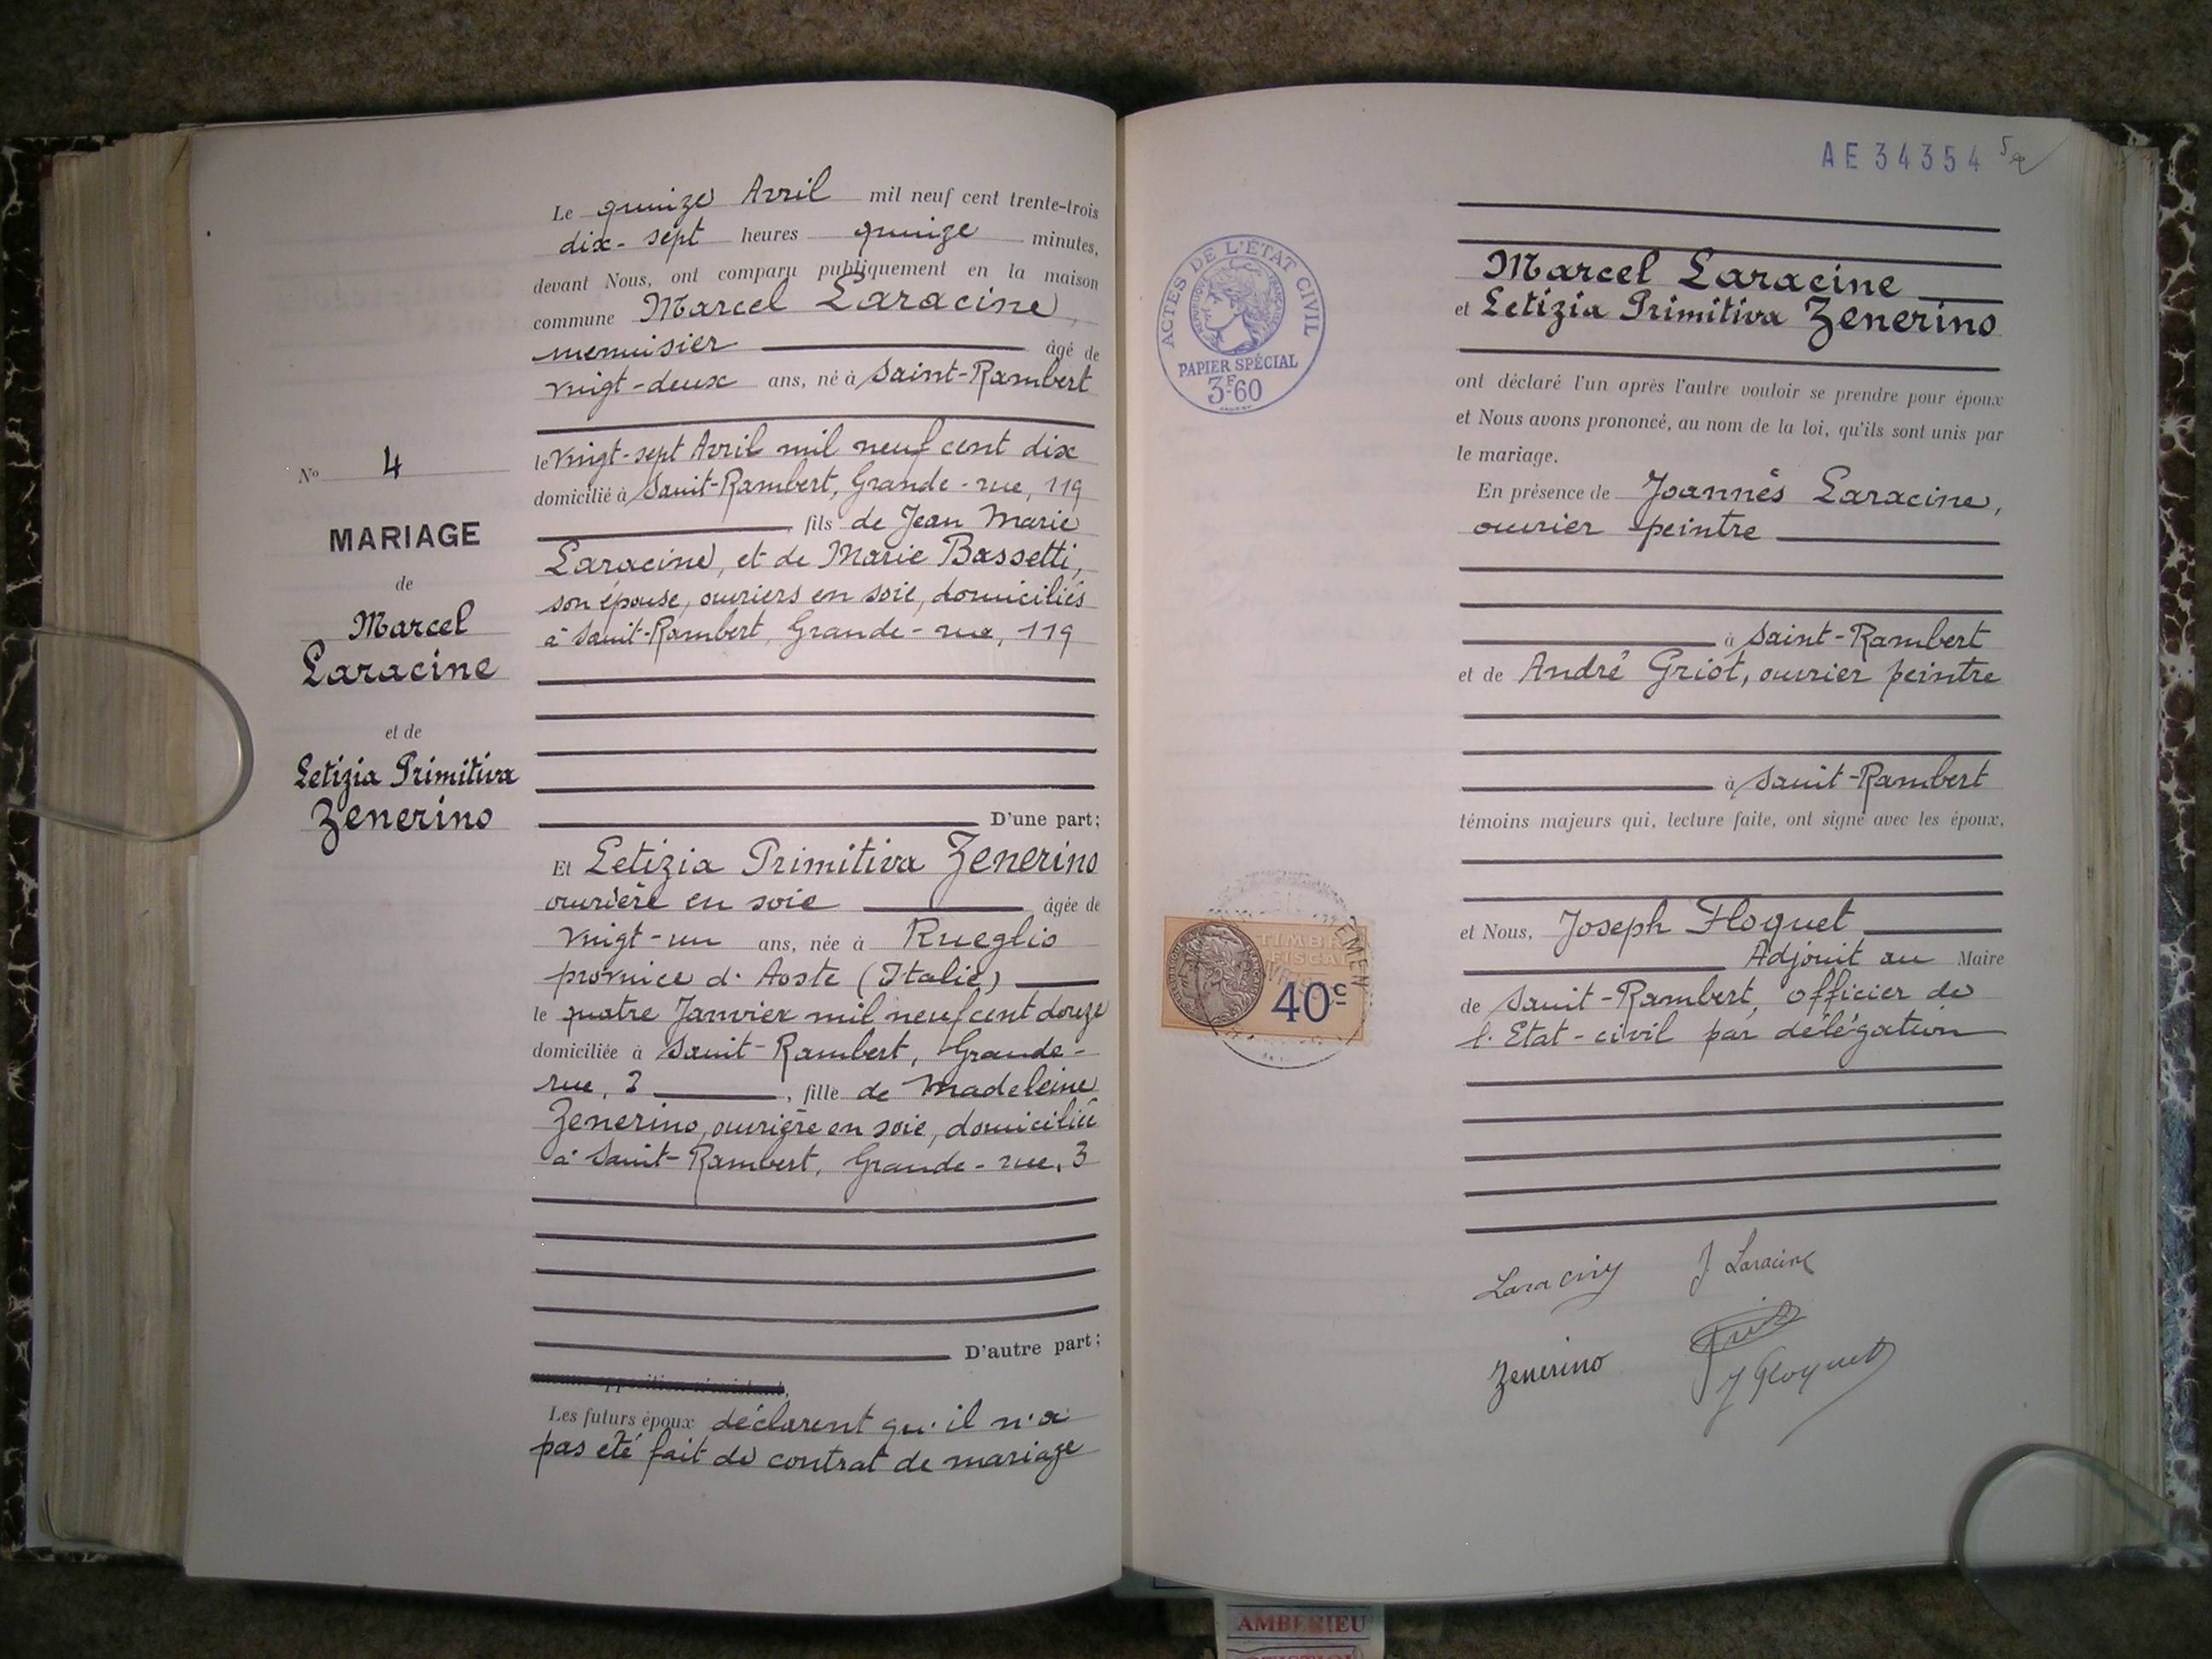 Le quinze Avril mil neuf cent trente-trois
dix-sept heures quinze minutes,
devant Nous, ont comparu publiquement en la maison
commune Marcel Laracine,
menuisier âgé de
vingt-deux ans, né à Saint-Rambert
le vingt-sept Avril mil neuf cent dix
domicilié à Saint-Rambert, Grande-rue, 119
, fils de Jean Marie
Laracine, et de Marie Bassetti,
son épouse, ouvriers en soie, domiciliés
à Saint-Rambert, Grande-rue, 119
D'une part;
Et Letizia Primitiva Zenerino
ouvrière en soie âgée de
vingt-un ans, née à Rueglio
province d'Aoste (Italie)
le quatre Janvier mil neuf cent douze
domiciliée à Saint-Rambert, Grande-
rue, 3, fille de Madeleine
Zenerino, ouvrière en soie, domiciliée
à Saint-Rambert, Grande-rue, 3
D'autre part;
Les futurs époux déclarent qu'il n'a
pas été fait de contrat de mariage
No 4
MARIAGE
de
Marcel
Laracine
et de
Letizia Primitiva
Zenerino
AE34354
ACTES DE L'ÉTAT CIVIL
PAPIER SPÉCIAL
3F60
Marcel Laracine
et Letizia Primitiva Zenerino
ont déclaré l'un après l'autre vouloir se prendre pour époux
et Nous avons prononcé, au nom de la loi, qu'ils sont unis par
le mariage.
En présence de Joannès Laracine,
ouvrier peintre
à Saint-Rambert
et de André Griot, ouvrier peintre
à Saint-Rambert
témoins majeurs qui, lecture faite, ont signé avec les époux,
et Nous, Joseph Floquet
Adjoint au Maire
de Saint-Rambert, officier de
l'Etat-civil par délégation
TIMBRE
FISCAL
40c
Laracine
J. Laracine
Zenerino
J Floquet
AMBERIEU